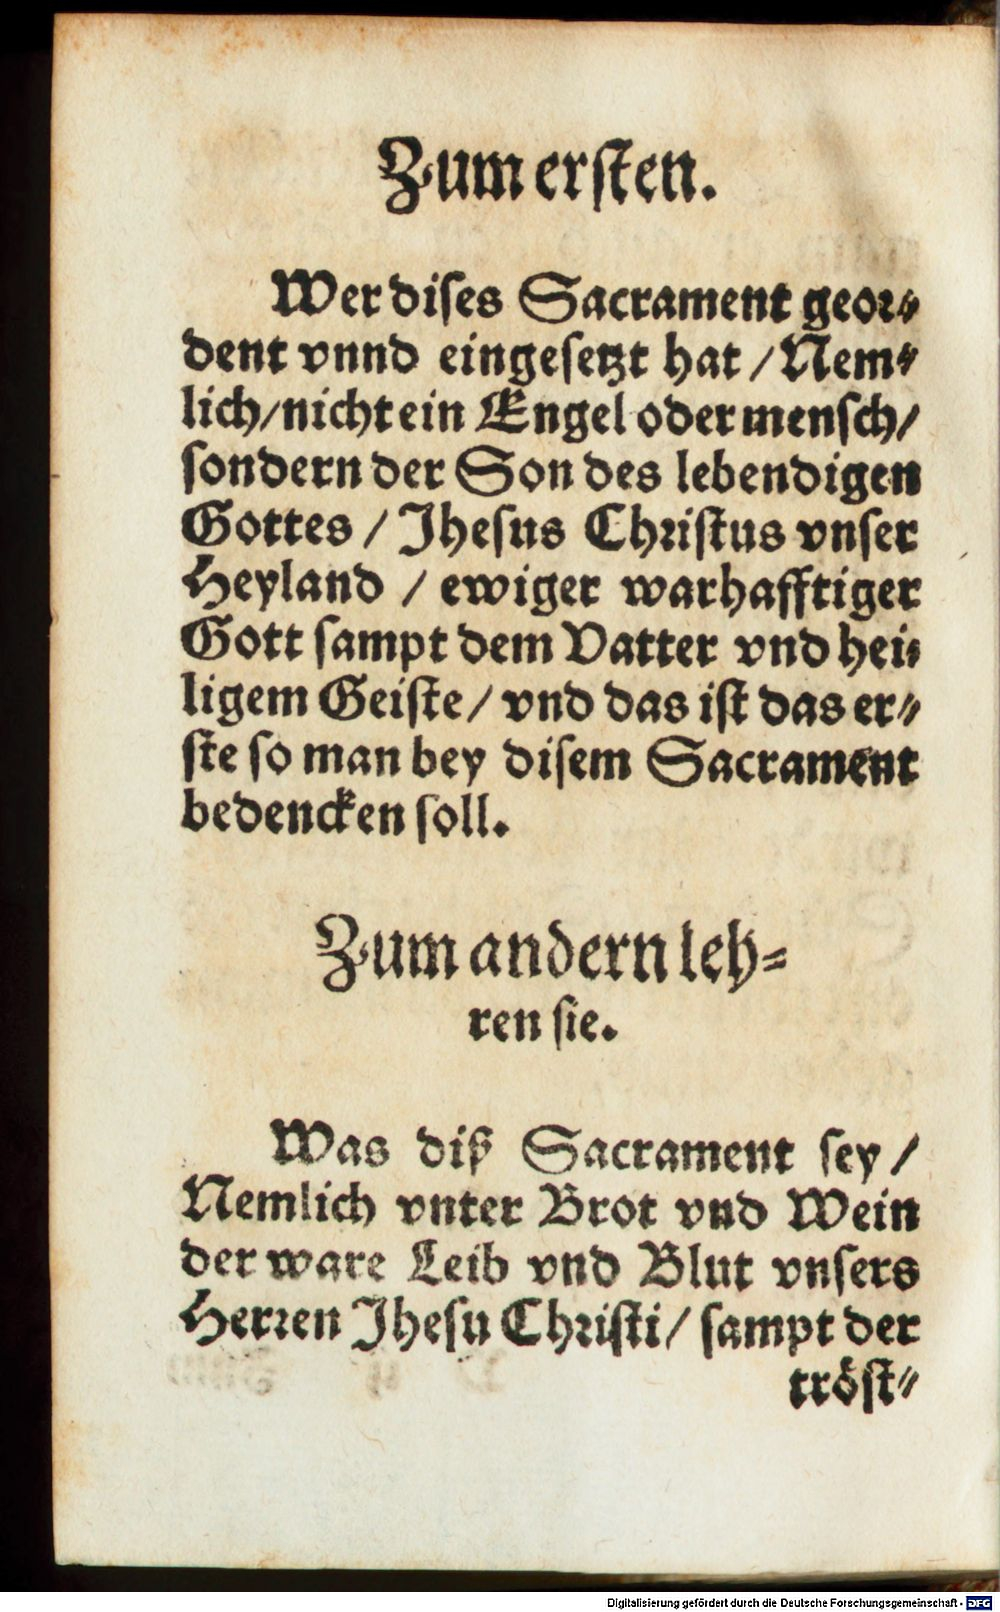 Zum ersten.
Wer dises Sacrament geor⸗
dent vnnd eingesetzt hat / Nem⸗
lich / nicht ein Engel oder mensch /
sondern der Son des lebendigen
Gottes / Jhesus Christus vnser
Heyland / ewiger warhafftiger
Gott sampt dem Vatter vnd hei⸗
ligem Geiste / vnd das ist das er⸗
ste so man bey disem Sacrament
bedencken soll.
Zum andern leh⸗
ren sie.
Was diß Sacrament sey /
Nemlich vnter Brot vnd Wein
der ware Leib vnd Blut vnsers
Herren Jhesu Christi / sampt der
tröst⸗
Digitalisierung gefördert durch die Deutsche Forschungsgemeinschaft - DFG